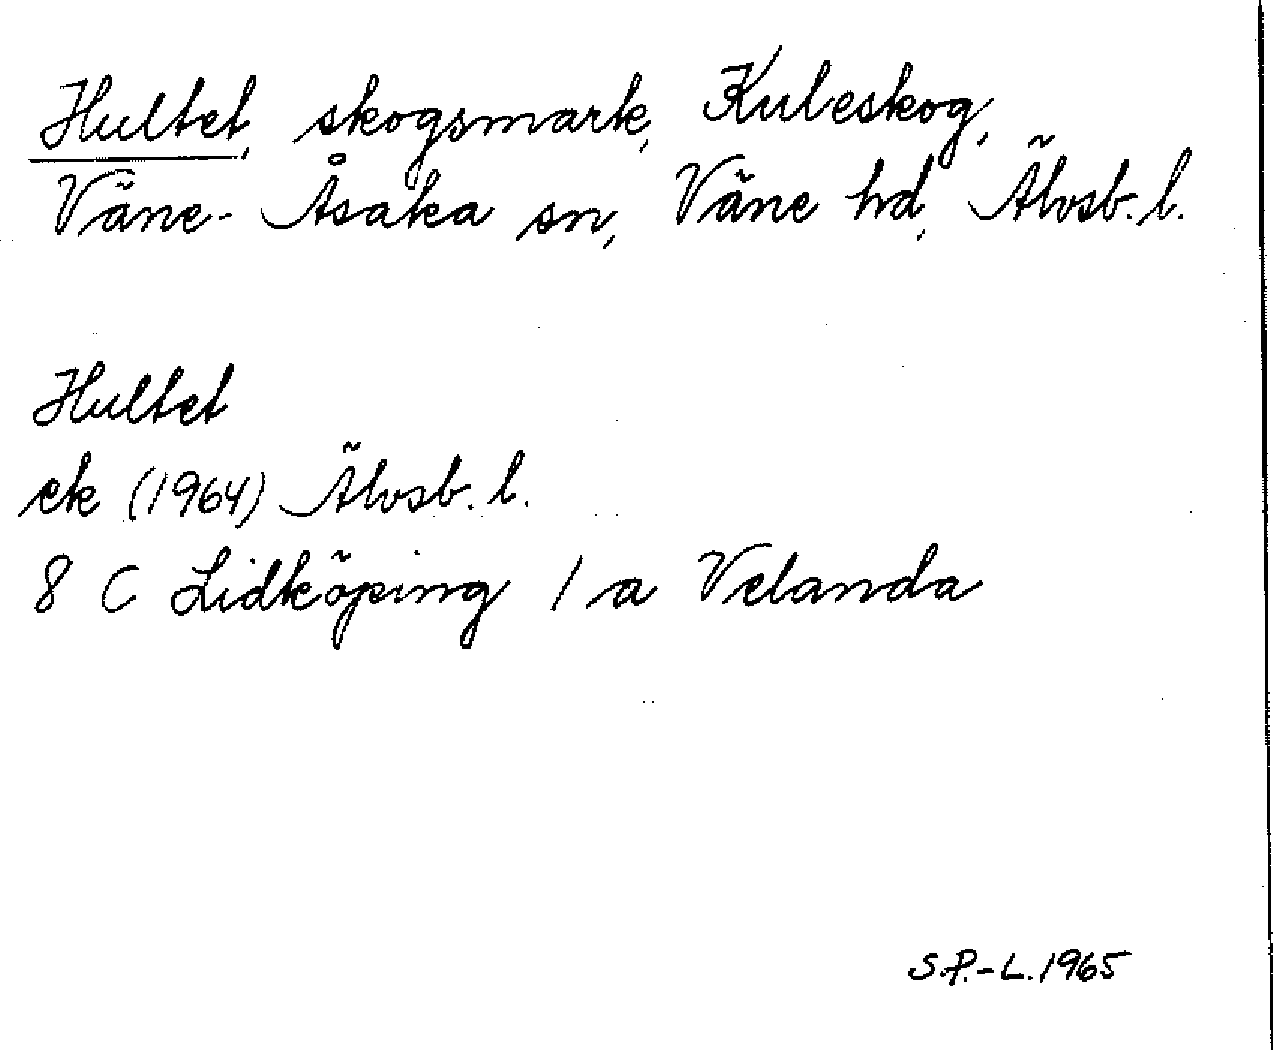 Hultet, skogsmark, Kuleskog,
Väne-Åsaka sn, Väne hd, Älvsb. l.
Hultet
ek (1964) Älvsb. l.
8 C Lidköping 1 a Velanda
S.P.-L. 1965